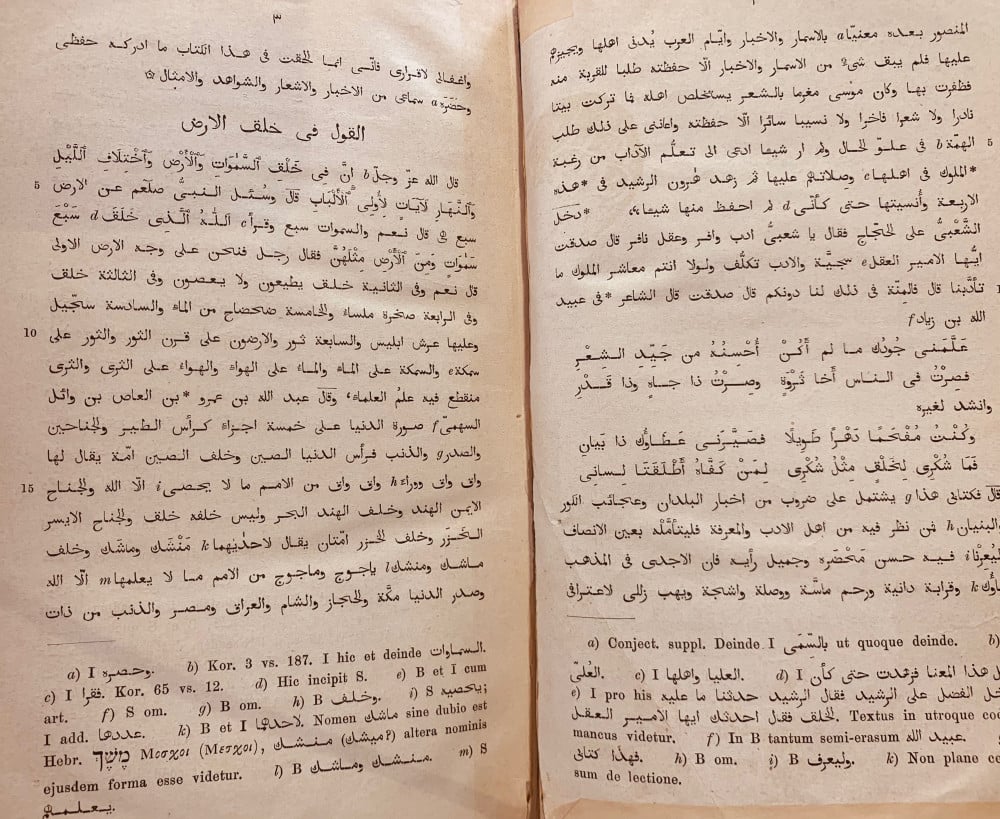 المنصور بعده معنيّا a بالاسمار والاخبار وايّام العرب يُدنى اهلها ويجيزهم
عليها فلم يبق شىء من الاسمار والاخبار الّا حفظته طلبا للقربة منه
فظفرت بها وكان موسى مغرما بالشعر يستخلص اهله فما تركت بيتا
نادرا ولا شعرا فاخرا ولا نسيبا سائرا الّا حفظته واعاننى على ذلك طلب
الهمّة b فى علوّ الحال ولم ار شيئا ادعى الى تعلّم الآداب من رغبة 5
*الملوك فى اهلها c وصلاتهم عليها ثم زهد هٰرون الرشيد فى *هذه
الاربعة وأُنسيتها حتى كأنّى d لم احفظ منها شيئا، *دخل
الشَّعْبىُّ على الحجّاج فقال يا شعبىُّ ادب وافر وعقل نافر قال صدقت
ايّها الامير العقل e سجيّة والادب تكلّف ولولا انتم معاشر الملوك ما
تأدّبنا قال فالمِنّة فى ذلك لنا دونكم قال صدقت قال الشاعر *فى عبيد
الله بن زياد f
عَلَّمَنى جُودُك ما لم أَكُنْ أُحْسِنُهُ من جَيِّدِ الشِعْرِ
فصِرْتُ فى الناس أخا ثَرْوَةٍ وصِرْتُ ذا جاهٍ وذا قَدْرِ
وانشد لغيره
وكُنْتُ مُفْحَمًا دَهْرًا طَوِيلًا فصَيَّرَنى عَطاوُك ذا بَيانِ
فَما شُكْرِى لِخَلْقٍ مِثْلُ شُكْرِى لِمَنْ كَفَّاهُ أَطْلَقَتَا لِسانى
قال فكتابى هذا g يشتمل على ضروب من اخبار البلدان وعجائب الكور
والبنيان h فمن نظر فيه من اهل الادب والمعرفة فليتأمَّلْه بعين الانصاف
ليُعِرْنا i فيه حسن مَحْضَره وجميل رأيه فان الاجدى فى المذهب
k وقرابة دانية ورحم ماسّة ووصلة واشجة ويهب زللى لاعترافى
a) Conject. suppl. Deinde I بالسَّمَى ut quoque deinde. b)
العُلىّ. c) I العليا واهلها. d) I هذا المعنا فزهدت حتى كأن
e) I pro his الفضل على الرشيد فقال الرشيد حدثنا ما عليه
الخلق فقال احدثك ايها الامير العقل. Textus in utroque
mancus videtur. f) In B tantum semi-erasum عبيد الله.
فهذا كتابى. h) B om. i) B وليعرف. k) Non plane
sum de lectione.
٣
واغفالى لاقرارى فانّنى انما الحقت فى هذا الكتاب ما ادركه حفظى
وحضَرَه a سماعى من الاخبار والاشعار والشواهد والامثال ۞
القول فى خلق الارض
قال الله عزّ وجلّ b انَّ فِى خَلْقِ ٱلسَّمٰوَاتِ وَٱلْأَرْضِ وَٱخْتِلَافِ ٱللَّيْلِ
وَٱلنَّهَارِ لَآيَاتٍ لِأُولِى ٱلْأَلْبَابِ قال وسُئل النبىُّ صلّعم عن الارض 5
سبع هى قال نعم والسموات سبع وقرأ c ٱللّٰهُ ٱلَّذِى خَلَقَ d سَبْعَ
سَمٰوَاتٍ وَمِنَ ٱلْأَرْضِ مِثْلَهُنَّ فقال رجل فنحن على وجه الارض الاولى
قال نعم وفى الثانية خلق يطيعون ولا يعصون وفى الثالثة خلق
وفى الرابعة صخرة ملساء والخامسة ضحضاح من الماء والسادسة سجّيل
وعليها عرش ابليس والسابعة ثور والارضون على قرن الثور والثور على 10
سمكة e والسمكة على الماء والماء على الهواء والهواء على الثرى والثرى
منقطع فيه علمُ العلماء، وقال عبد الله بن عمرو *بن العاص بن وائل
السهمىّ f صورة الدنيا على خمسة اجزاء كرأس الطير والجناحين
والصدر g والذنب فرأس الدنيا الصين وخلف الصين امّة يقال لها
واق واق ووراء h واق واق من الامم ما لا يحصى i الّا الله والجناح 15
الايمن الهند وخلف الهند البحر وليس خلفه خلق والجناح الايسر
الخَزَر وخلف الخزر امّتان يقال لاحديهما k مَنْشَك وماشَك وخلف
ماشك ومنشك l ياجوج وماجوج من الامم ما لا يعلمها m الّا الله
وصدر الدنيا مكّة والحجاز والشام والعراق ومصر والذنب من ذات
a) I وحصره. b) Kor. 3 vs. 187. I hic et deinde السماوات.
c) I فقرا. Kor. 65 vs. 12. d) Hic incipit S. e) B et I cum
art. f) S om. g) B om. h) B وخلف. i) S يحصيه;
I add. عددها. k) B et I لاحدها. Nomen ماشك sine dubio est
Hebr. מֶשֶׁךְ Μοσχοι (Μεσχοι), منشك (ميشك?) altera nominis
ejusdem forma esse videtur. l) B منشك وماشك. m) S
يعلمهم.